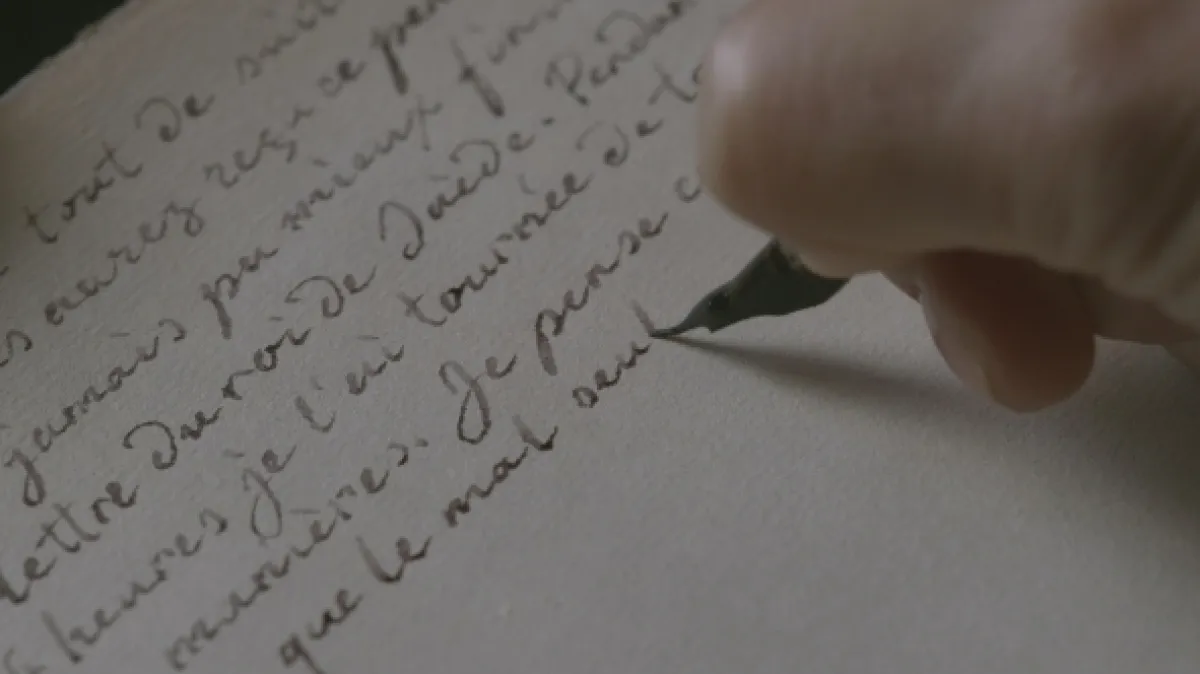 tout de suite
aurez reçu ce
jamais pu mieux
lettre du roi de Suède.
heures je l'ai tournée de
manières. Je pense
que le mal seul